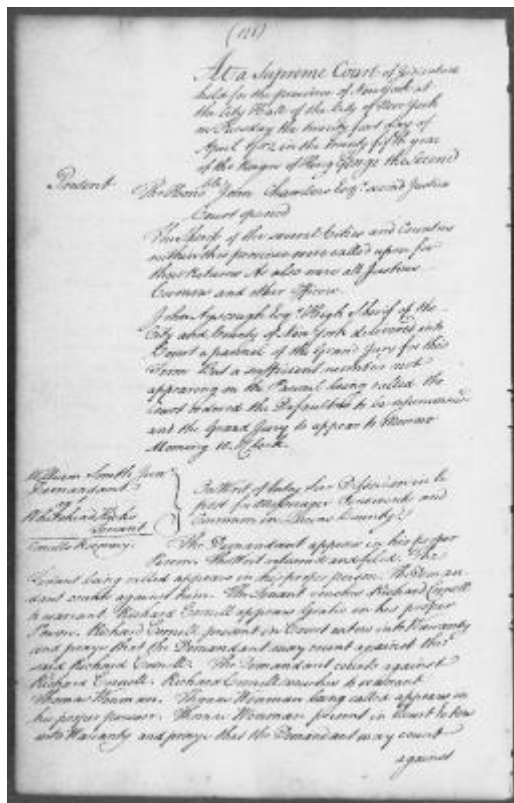 At a Supreme Court of Judicature
held for the province of New York at
the City Hall of the City of New York
on Tuesday the twenty first day of
April 1752 in the twenty fifth year
of the Reign of King George the Second
Present
The Honble John Chambers Esqr second Justice
Court opened
The Sherifs of the several Cities and Counties
within this province were called upon for
their Returns As also were all Justices
Coroners and other Officers
John Ayscough Esqr High Sherif of the
City and County of New York delivered into
Court a pannel of the Grand Jury for this
Term But a sufficient number not
appearing on the Pannel being called the
Court ordered the Defaulters to be
and the Grand Jury to appear to Morrow
Morning 10. Clock.
William Smith Junr
Demandant
Whitehead Hicks
Tenant
On Writ of Entry Sur Disseisin in le
post for Messuages and
Common in County
The Demandant appears in his proper
Person. The Writ returned and filed. The
Tenant being called appears in his proper person. The Deman-
dant counts against him. The Tenant vouches Richard Cornell
to warrant. Richard Cornell appears Gratis in his proper
Person. Richard Cornell present in Court enters into Warranty
and prays that the Demandant may count against the
said Richard Cornell. The Demandant counts against
Richard Cornell. Richard Cornell vouches to warrant
Thomas Wenman. Thomas Wenman being called appears in
his proper person. Thomas Wenman present in Court enters
into Warranty and prays that the Demandant may count
against